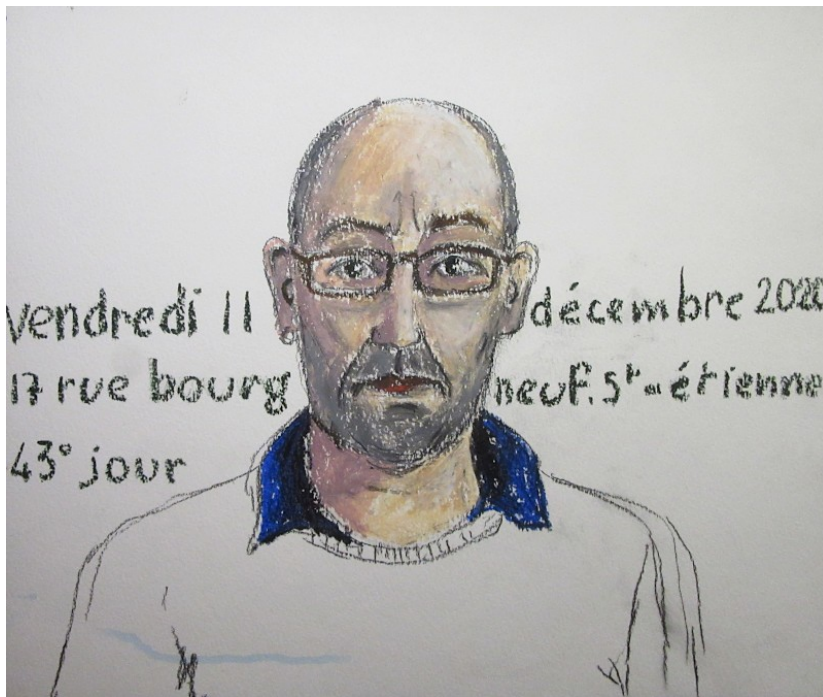 vendredi 11 décembre 2020
17 rue bourg neuf. St-étienne
43° jour